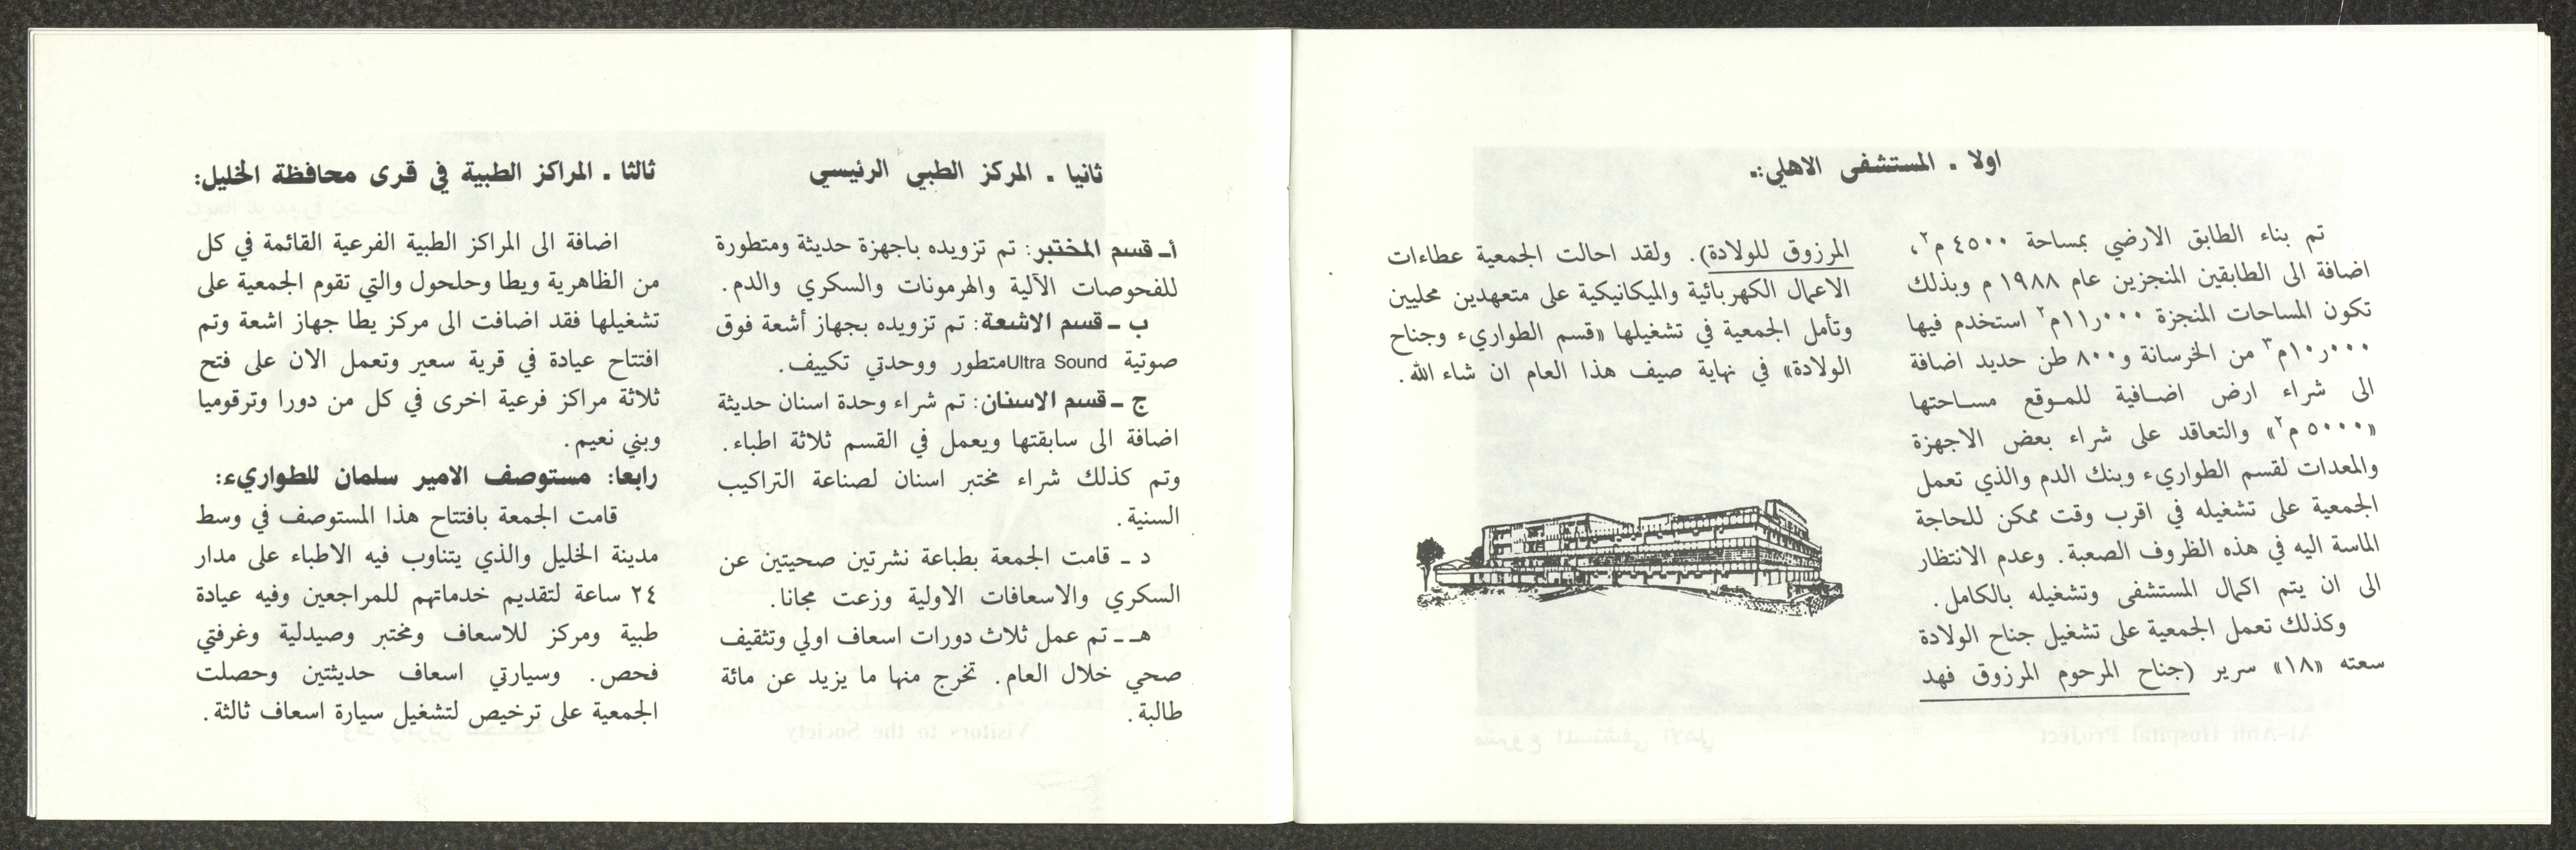 اولا ـ المستشفى الاهلي:ـ
تم بناء الطابق الارضي بمساحة ٤٥٠٠ م٢،
اضافة الى الطابقين المنجزين عام ١٩٨٨ م وبذلك
تكون المساحات المنجزة ١١ر٠٠٠م٢ استخدم فيها
١٠ر٠٠٠م٣ من الخرسانة و٨٠٠ طن حديد اضافة
الى شراء ارض اضافية للموقع مساحتها
«٥٠٠٠م٢» والتعاقد على شراء بعض الاجهزة
والمعدات لقسم الطواريء وبنك الدم والذي تعمل
الجمعية على تشغيله في اقرب وقت ممكن للحاجة
الماسة اليه في هذه الظروف الصعبة. وعدم الانتظار
الى ان يتم اكمال المستشفى وتشغيله بالكامل.
وكذلك تعمل الجمعية على تشغيل جناح الولادة
سعته «١٨» سرير (جناح المرحوم المرزوق فهد
المرزوق للولادة). ولقد احالت الجمعية عطاءات
الاعمال الكهربائية والميكانيكية على متعهدين محليين
وتأمل الجمعية في تشغيلها «قسم الطواريء وجناح
الولادة» في نهاية صيف هذا العام ان شاء الله.
ثانيا ـ المركز الطبي الرئيسي
أـ قسم المختبر: تم تزويده باجهزة حديثة ومتطورة
للفحوصات الآلية والهرمونات والسكري والدم.
ب ـ قسم الاشعة: تم تزويده بجهاز أشعة فوق
صوتية Ultra Sound متطور ووحدتي تكييف.
ج ـ قسم الاسنان: تم شراء وحدة اسنان حديثة
اضافة الى سابقتها ويعمل في القسم ثلاثة اطباء.
وتم كذلك شراء مختبر اسنان لصناعة التراكيب
السنية.
د ـ قامت الجمعة بطباعة نشرتين صحيتين عن
السكري والاسعافات الاولية وزعت مجانا.
هـ ـ تم عمل ثلاث دورات اسعاف اولي وتثقيف
صحي خلال العام. تخرج منها ما يزيد عن مائة
طالبة.
ثالثا ـ المراكز الطبية في قرى محافظة الخليل:
اضافة الى المراكز الطبية الفرعية القائمة في كل
من الظاهرية ويطا وحلحول والتي تقوم الجمعية على
تشغيلها فقد اضافت الى مركز يطا جهاز اشعة وتم
افتتاح عيادة في قرية سعير وتعمل الان على فتح
ثلاثة مراكز فرعية اخرى في كل من دورا وترقوميا
وبني نعيم.
رابعا: مستوصف الامير سلمان للطواريء:
قامت الجمعة بافتتاح هذا المستوصف في وسط
مدينة الخليل والذي يتناوب فيه الاطباء على مدار
٢٤ ساعة لتقديم خدماتهم للمراجعين وفيه عيادة
طبية ومركز للاسعاف ومختبر وصيدلية وغرفتي
فحص. وسيارتي اسعاف حديثتين وحصلت
الجمعية على ترخيص لتشغيل سيارة اسعاف ثالثة.